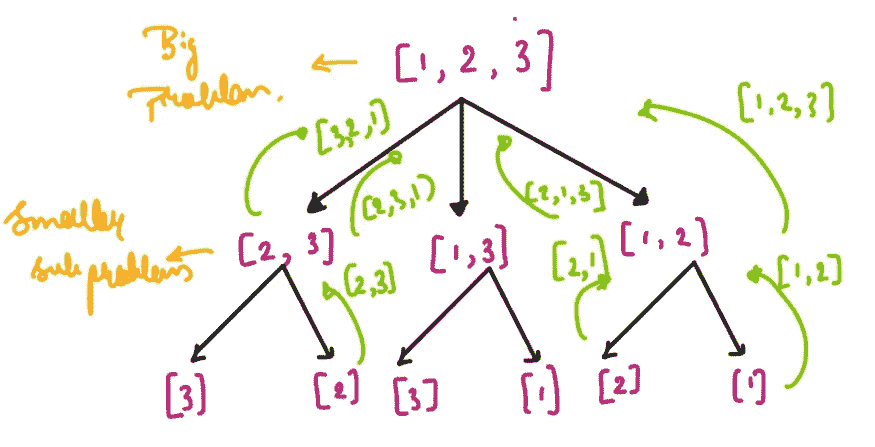 Big
Problem.
[1, 2, 3]
[1,2,3]
[3,2,1]
[2,3,1)
[2,1,3]
Smaller
sub problems
[2, 3]
[1,3]
[1,2]
[2,3]
[2,1]
[1,2]
[3]
[2]
[3]
[1]
[2]
[1]